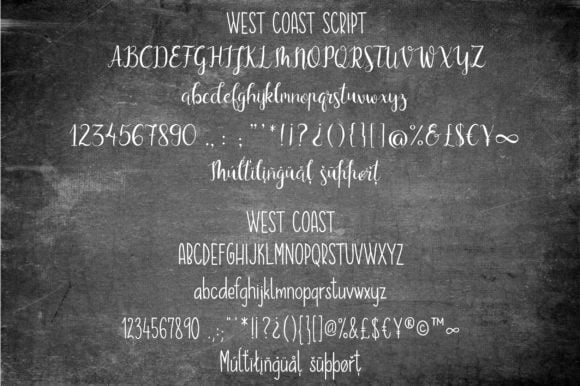 WEST COAST SCRIPT
ABCDEFGHIJKLMNOPQRSTUVWXYZ
abcdefghijklmnopqrstuvwxyz
1234567890 .,:; "'*!¡?¿(){}[]@%&£$€¥∞
Ṃủťıłıṇġüāḷ ṡūṗṗөṛţ
WEST COAST
ABCDEFGHIJKLMNOPQRSTUVWXYZ
abcdefghijklmnopqrstuvwxyz
1234567890 .,:;"'*!¡?¿(){}[]@%&£$€¥®©™∞
Múľtıłıņġüåļ šūppøŗţ